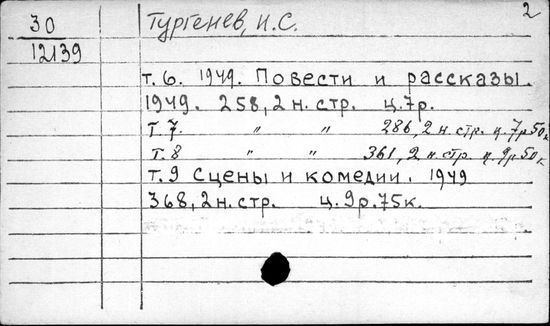 2
30
12139
Тургенев, И.С.
т. 6. 1949. Повести и рассказы.
1949. 258, 2 н. стр. ц. 7 р.
т. 7. " " 286, 2 н. стр. ц. 7 р 50 к
т. 8 " " 361, 2 н. стр. ц. 9 р. 50 к.
т. 9 Сцены и комедии. 1949
368, 2 н. стр. ц. 9 р. 75 к.